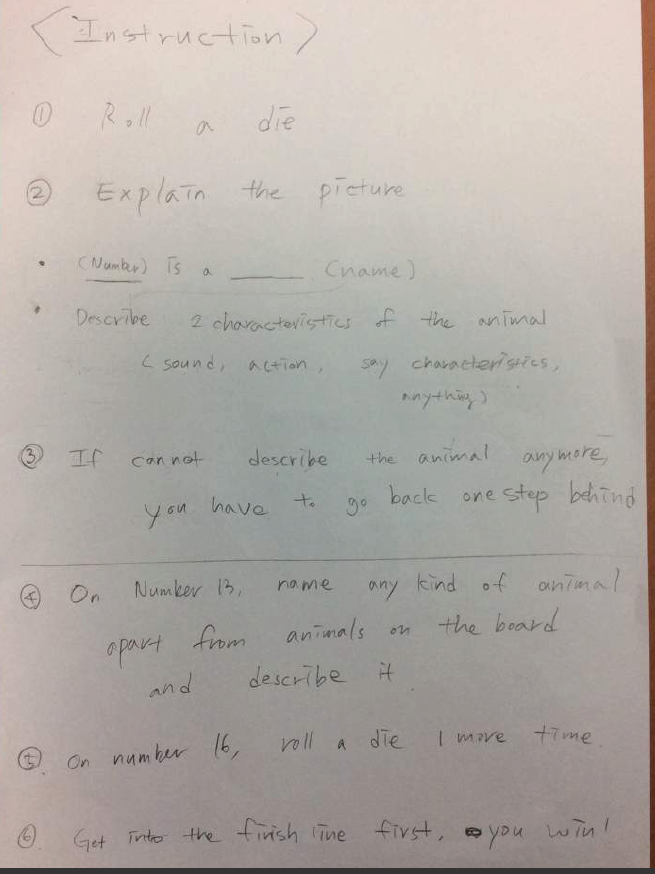 < Instruction >
① Roll a die
② Explain the picture
• (Number) is a ______ (name)
• Describe 2 characteristics of the animal
( sound, action, say characteristics,
anything)
③ If cannot describe the animal anymore,
you have to go back one step behind
④ On Number 13, name any kind of animal
apart from animals on the board
and describe it.
⑤. On number 16, roll a die 1 more time.
⑥. Get into the finish line first, you win!